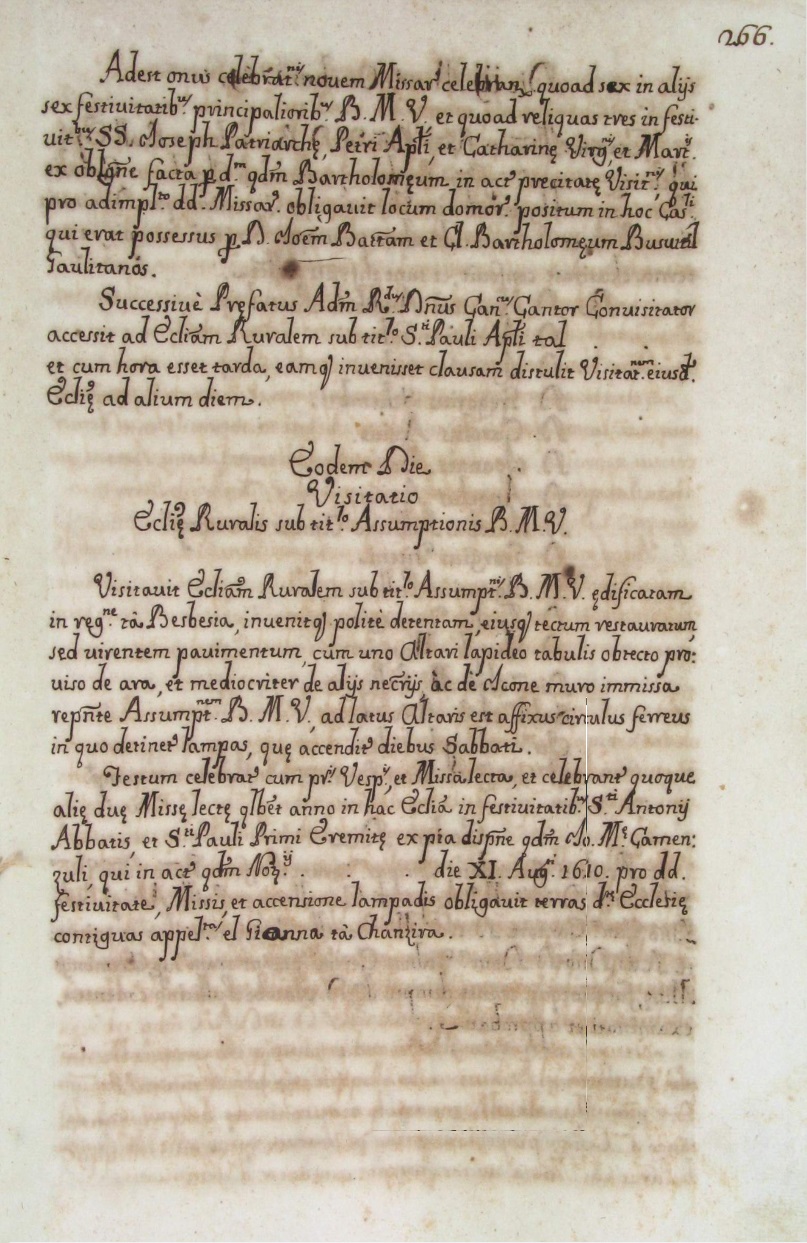 266.
Adest onus celebrat.ni nouem Missar. celebran. quoad sex in alijs
sex festiuitatib.s principaliorib.s B. M. V. et quoad reliquas tres in festi-
uit.bus SS. Joseph Patriarchę, Petri Apli, et Catharinę Virg. et Mart.
ex obligne facta p d.m qdm Bartholomęum in act. precitatę Visit.nis, qui
pro adimpl.to dd. Missar. obligauit locum domor. positum in hoc Cas.li
qui erat possessus p D. Joem Battam et Cl. Bartholomęum
Gaulitanos.
Successiuè Pręfatus Adm R.dus Dnus Can.cus Cantor Conuisitator
accessit ad Ecliam Ruralem sub tit.lo S.ti Pauli Apli tal . .
et cum hora esset tarda, eamq inuenisset clausam distulit Visitat.nem eiusd.
Eclię ad alium diem.
Eodem Die
Visitatio
Eclię Ruralis sub tit.lo Assumptionis B. M. V.
Visitauit Ecliam Ruralem sub tit.lo Assumpt.nis B. M. V. ędificatam
in reg.ne tà Besbesia, inuenitq politè detentam, eiusq tectum restauratum
sed uirentem pauimentum, cum uno Altari lapideo tabulis obtecto pro:
uiso de ara, et mediocriter de alijs necrijs, ac de Icone muro immissa
repnte Assumpt.nem B. M. V., ad latus Altaris est affixus circulus ferreus
in quo detinet. lampas, quę accendit. diebus Sabbati.
Festum celebrat. cum pr.is Vesp.is, et Missa lecta, et celebrant. quoque
alię duę Missę lectę qlbet anno in hac Eclia in festiuitatib.s S.ti Antonij
Abbatis, et S.ti Pauli Primi Eremitę ex pia dispne qdm Jo. M.e Camen:
zuli, qui in act. qdm Not.ij . . . die XI. Aug.ti 1610. pro dd.
festiuitate, Missis, et accensione lampadis obligauit terras d.ę Ecclesię
contiguas appel.tas el Gianna tà Chanzira.